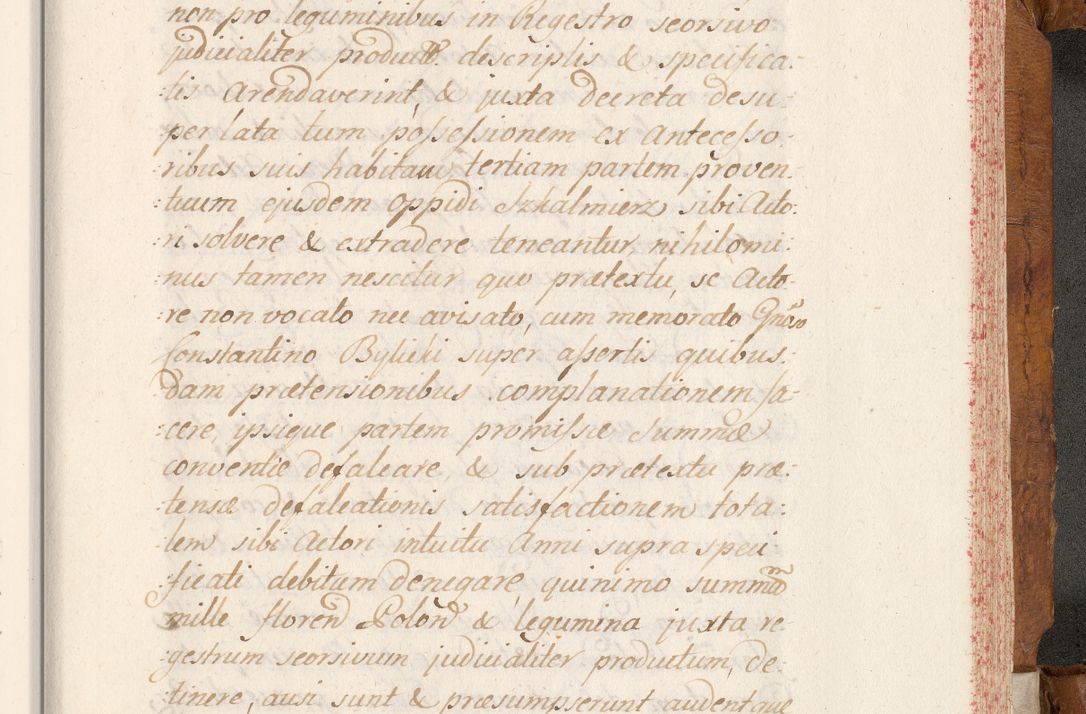 non pro leguminibus in Regestro seorsivo
judicialiter product. descriptis & specifica:
:tis Arendaverint, & juxta decreta desu:
per lata tum possessionem ex Antecesso:
:ribus suis habitam, tertiam partem proven:
:tuum ejusdem Oppidi Szkalmierz sibi Acto:
:ri solvere & extradere teneantur, nihilomi:
:nus tamen nescitur quo prætextu, se Acto:
:re non vocato nec avisato, cum memorato Gnoso
Constantino Bylicki super assertis quibus:
:dam prætensionibus complanationem fa:
:cere, ipsique partem promissæ Summæ
conventæ defalcare, & sub prætextu præ:
:tensæ defalcationis satisfactionem tota:
:lem sibi Actori intuitu Anni supra speci
:ficati debitam denegare, quinimo summam
mille floren Polon & legumina juxta re:
:gestrum seorsivum judicialiter productum, de:
:tinere, ausi sunt & præsumpserunt audentque